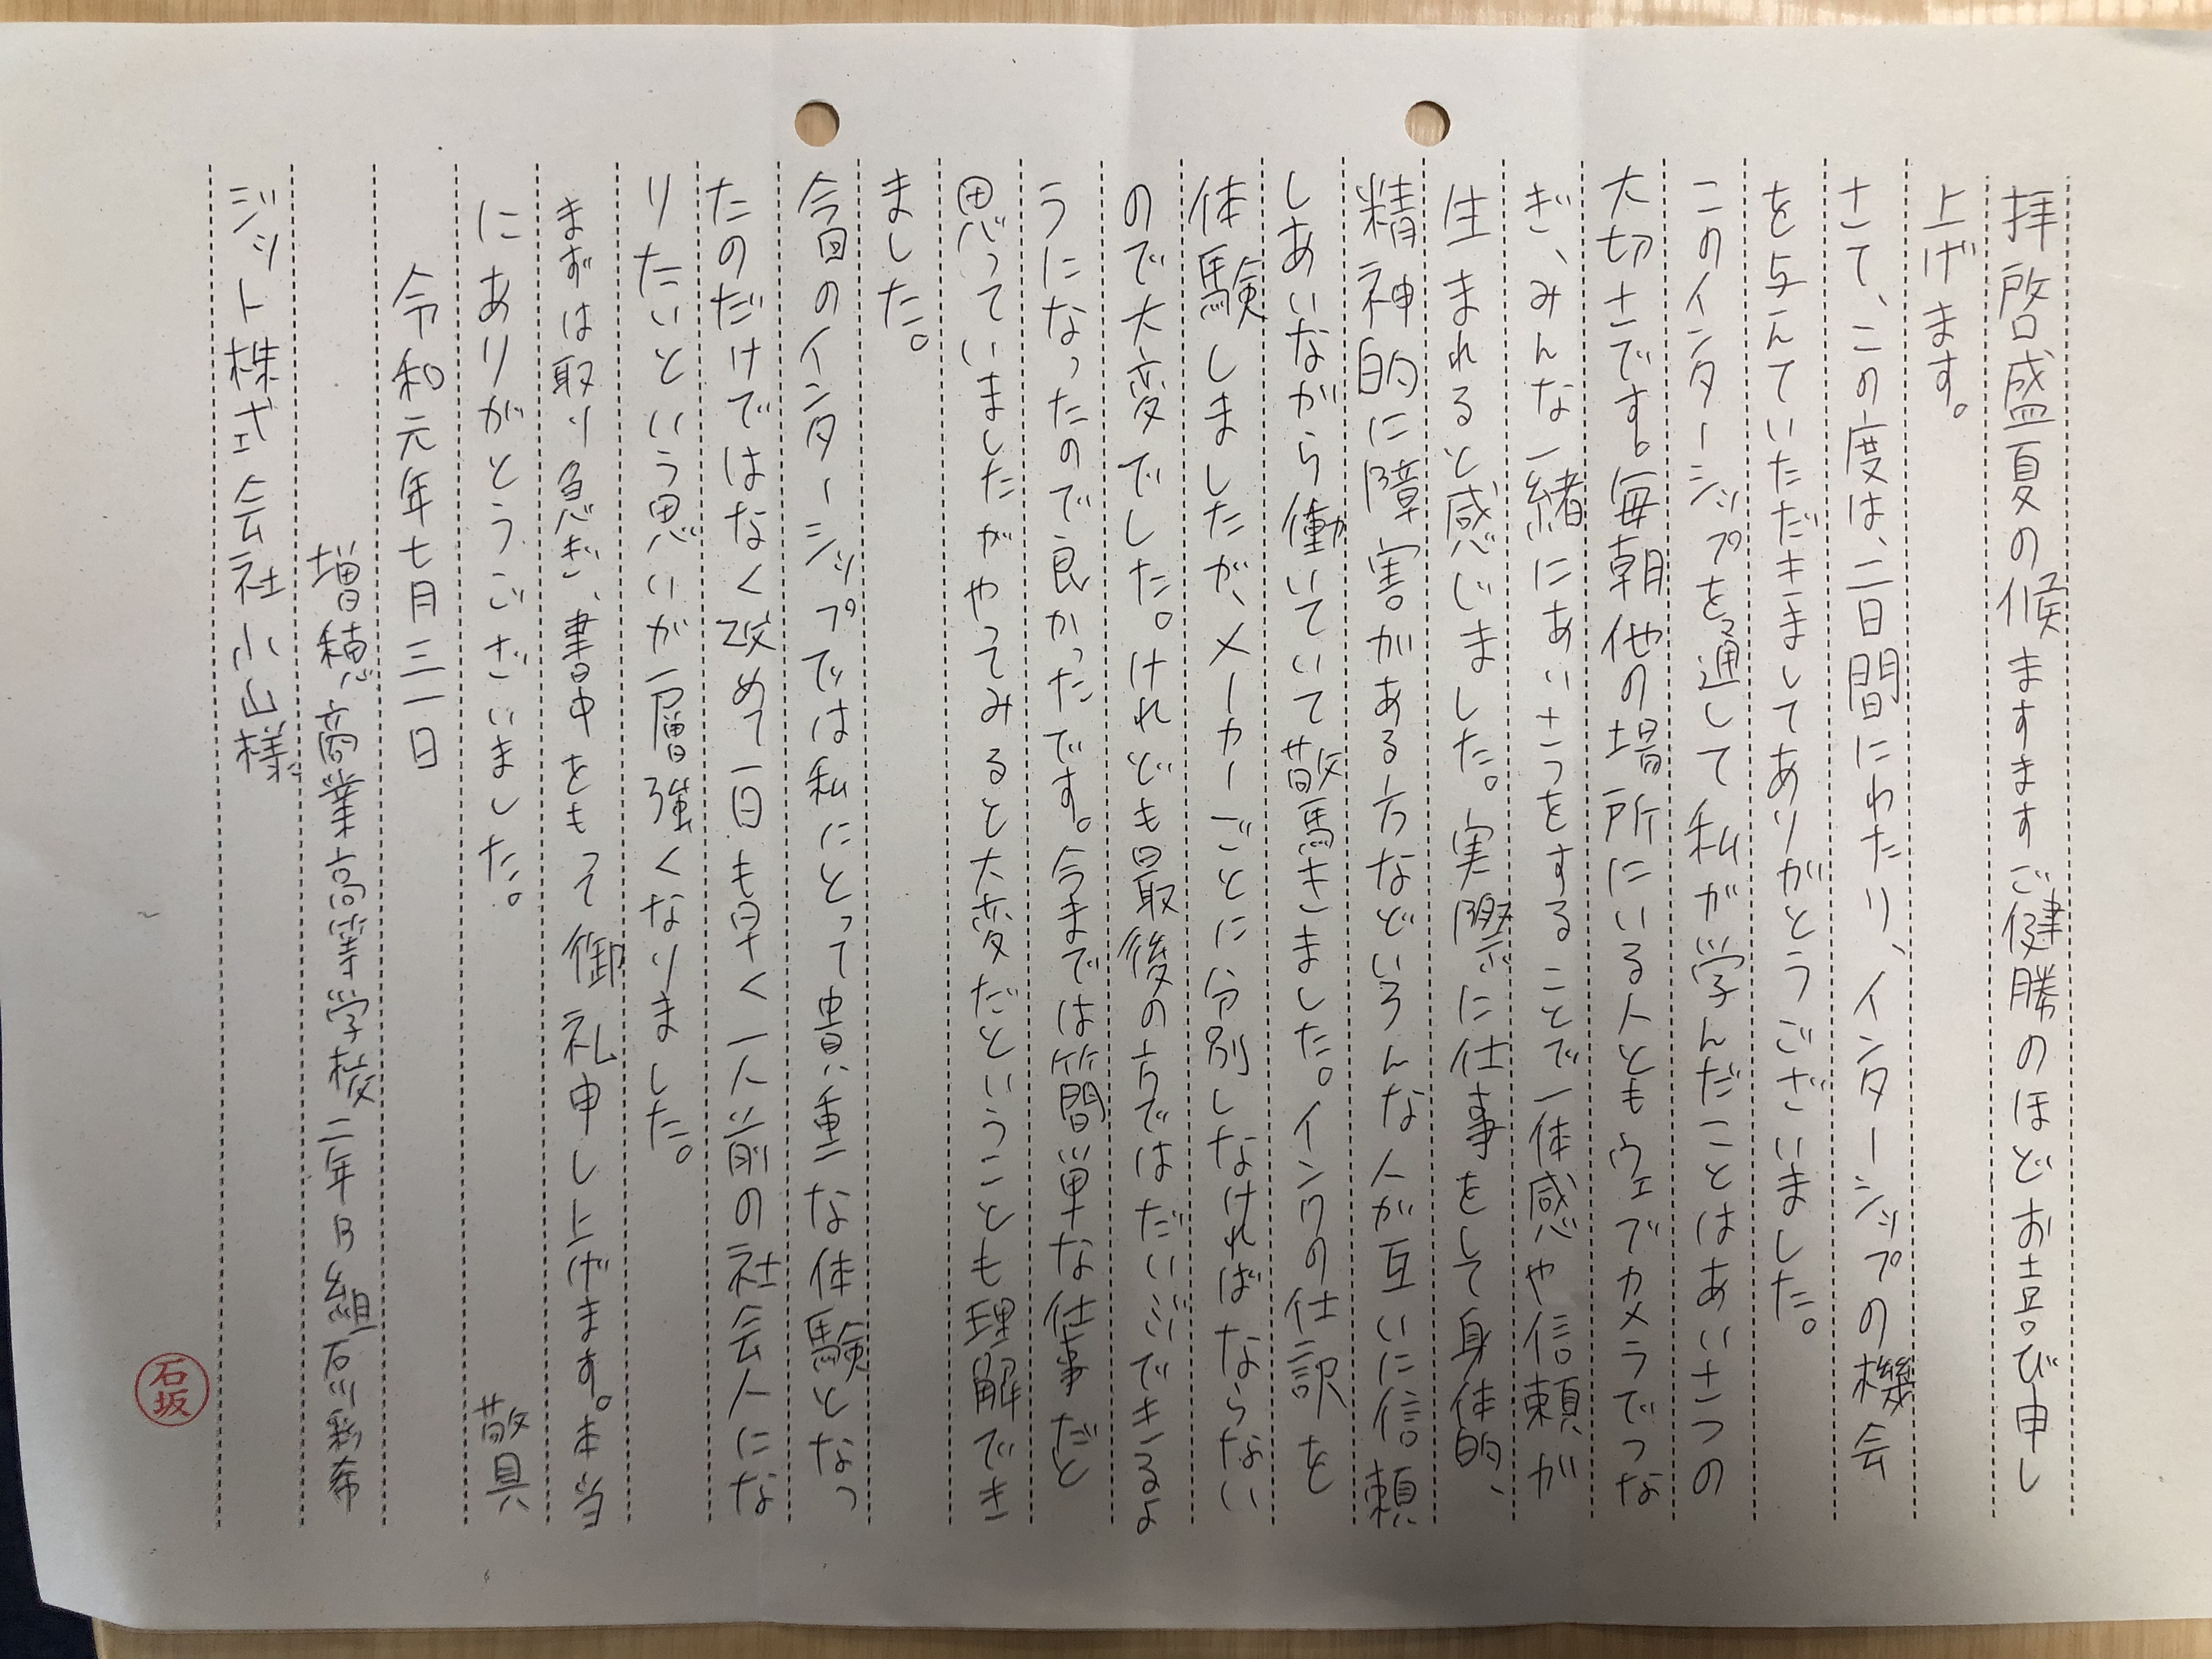 拝啓盛夏の候ますますご健勝のほどお喜び申し
上げます。
さて、この度は、二日間にわたり、インターンシップの機会
を与えていただきましてありがとうございました。
このインターンシップを通して私が学んだことはあいさつの
大切さです。毎朝他の場所にいる人ともウェブカメラでつな
ぎ、みんな一緒にあいさつをすることで一体感や信頼が
生まれると感じました。実際に仕事をして身体的、
精神的に障害がある方などいろんな人が互いに信頼
しあいながら働いていて驚きました。インクの仕訳を
体験しましたが、メーカーごとに分別しなければならない
ので大変でした。けれども最後の方ではだいぶできるよ
うになったので良かったです。今までは簡単な仕事だと
思っていましたがやってみると大変だということも理解でき
ました。
今回のインターンシップでは私にとって貴重な体験となっ
たのだけではなく改めて一日も早く一人前の社会人にな
りたいという思いが一層強くなりました。
まずは取り急ぎ、書中をもって御礼申し上げます。本当
にありがとうございました。 敬具
令和元年七月三一日
増穂商業高等学校二年B組石川彩希
ジット株式会社小山様
石坂